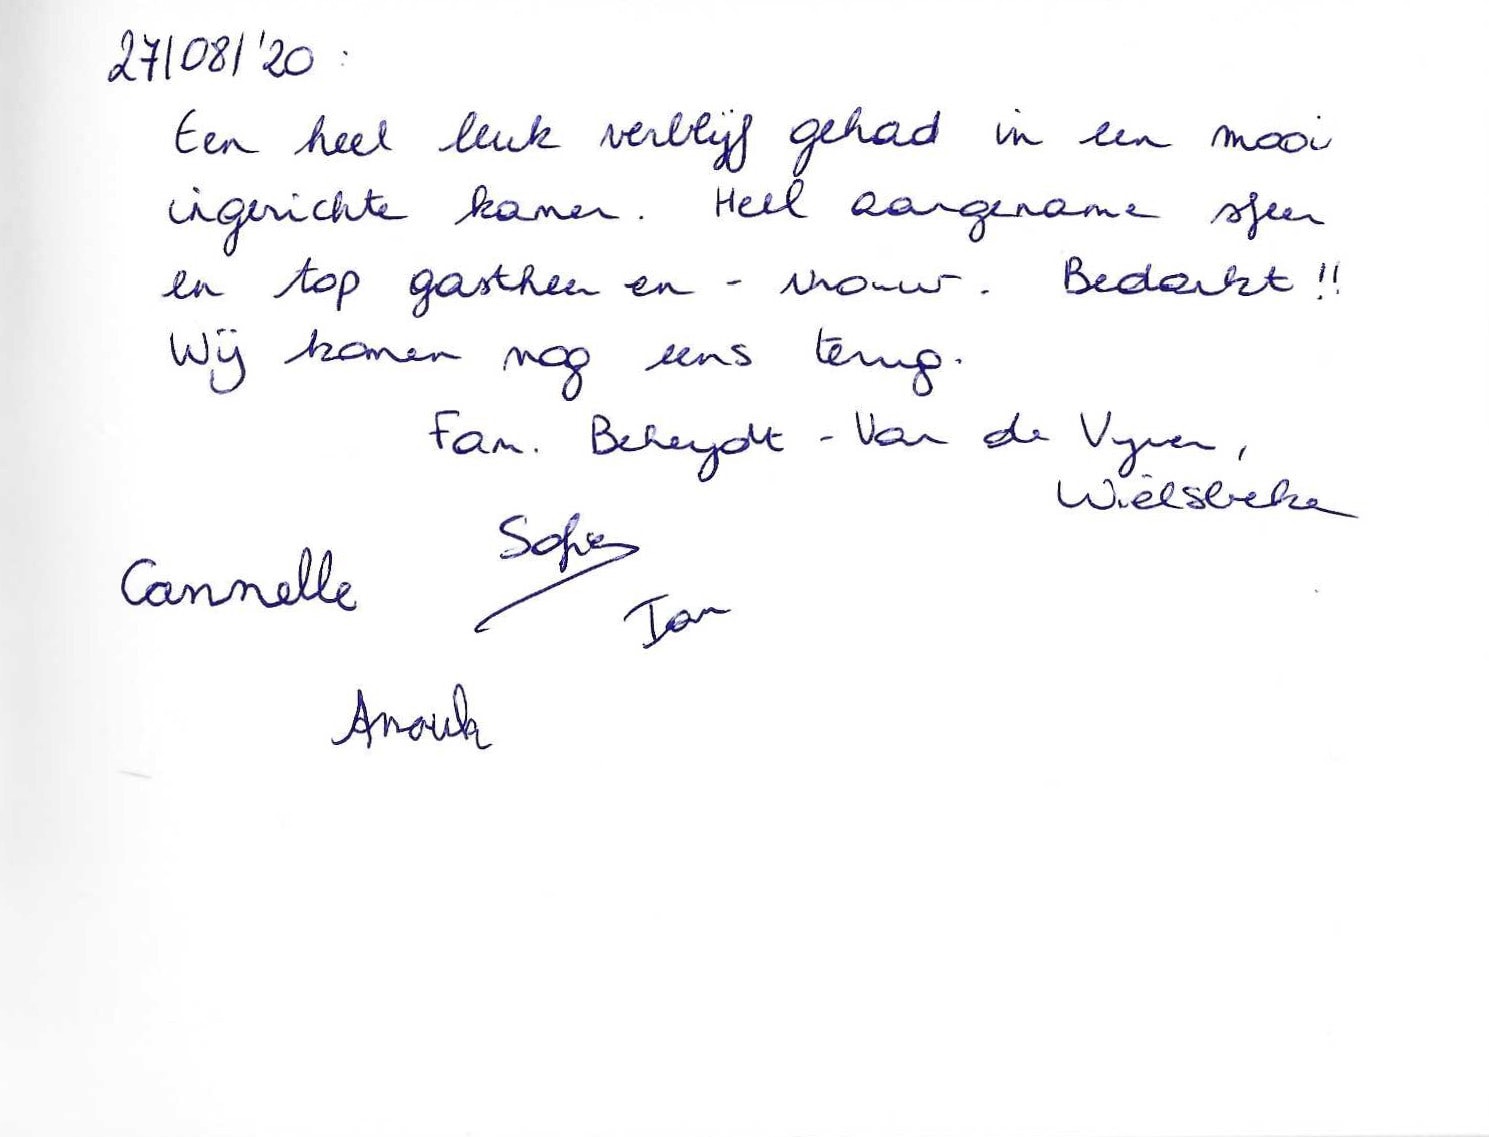 27/08/'20:
Een heel leuk verblijf gehad in een mooi
ingerichte kamer. Heel aangename sfeer
en top gastheer en - vrouw. Bedankt!!
Wij komen nog eens terug.
Fam. Beheydt - Van de Vyver,
Wielsbeke
Sofie
Cannelle
Jan
Anouk